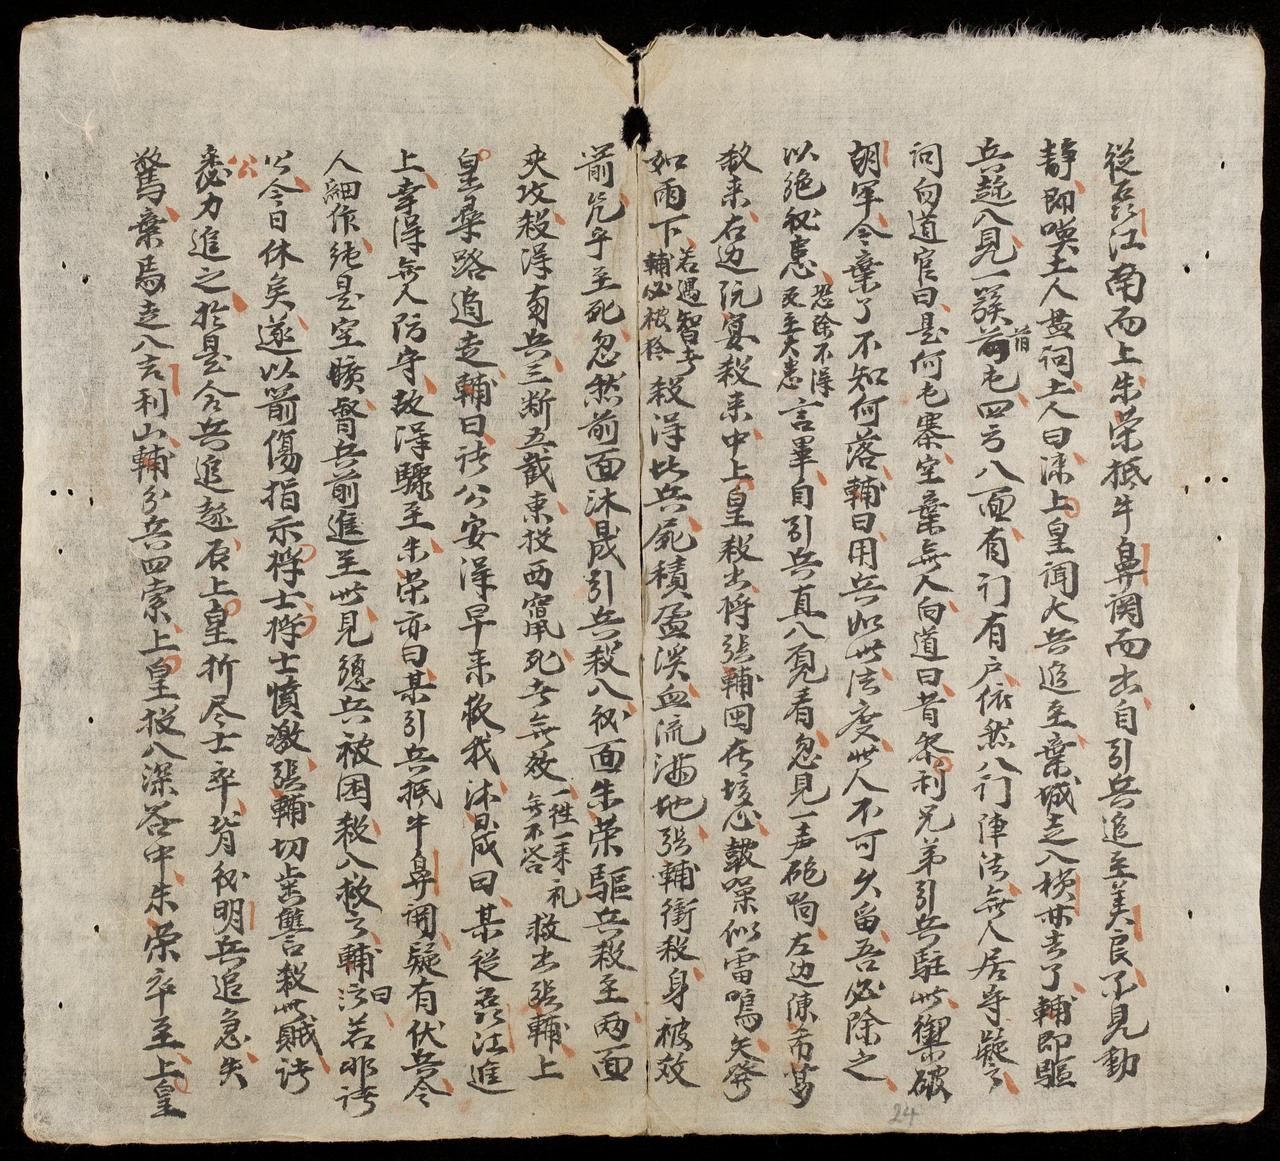 從蕊江南而上朱荣抵牛鼻関而出自引兵追至美良不見動
静即嘆土人盤问土人曰陳上皇闻大兵追至棄城走入横廿去了輔即驅
兵趕入見一簇前屯四方八面有门有户依然八门陣法無人居守疑
问向道官曰是何屯寨空棄無人向道曰昔黎利兄弟引兵駐此禦破
胡军今棄了不知何落輔曰用兵如此法度此人不可久留吾必除之
以绝他患恐除不得反至大患言畢自引兵直入覓看忽見一声砲响左边陳希葛
殺来右边阮宴殺来中上皇殺出将張輔困在垓心皷噪似雷鳴矢發
如雨下若遇智者輔必被擒殺得此兵屍積盈溪血流满地張輔衝殺身被效
箭几乎至死忽然前面沐晟引兵殺入後面朱荣驅兵殺至两面
夾攻殺得南兵三断五截東投西竄死者無效一徃一来無不答礼救出張輔上
皇尋路追走輔曰诸公安得早来救我沐晟曰某從蕊江進
上幸得無人防守故得驟至朱荣亦曰某引兵抵牛鼻関疑有伏兵令
人細作纯是空曠督兵前進至此見總兵被困殺入救之輔曰若非诸
公今日休矣遂以箭傷指示将士将士愤激張輔切歯誓言殺此賊诸
悉力追之於是令兵追趕后上皇折尽士卒背後明兵追急失
驚棄馬走入吉利山輔分兵四索上皇投入深谷中朱荣卒至上皇
24